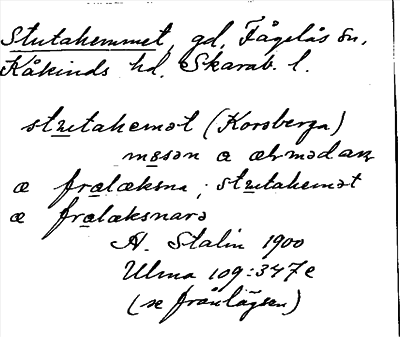 Stutahemmet, gd, Fågelås sn,
Kåkinds hd, Skarab. l.
stutahemət (Korsberga)
a
æ frælæksna; stutahemət
æ frælæksnarə
A. Stalin 1900
Ulma 109:347e
(se frånlägsen)